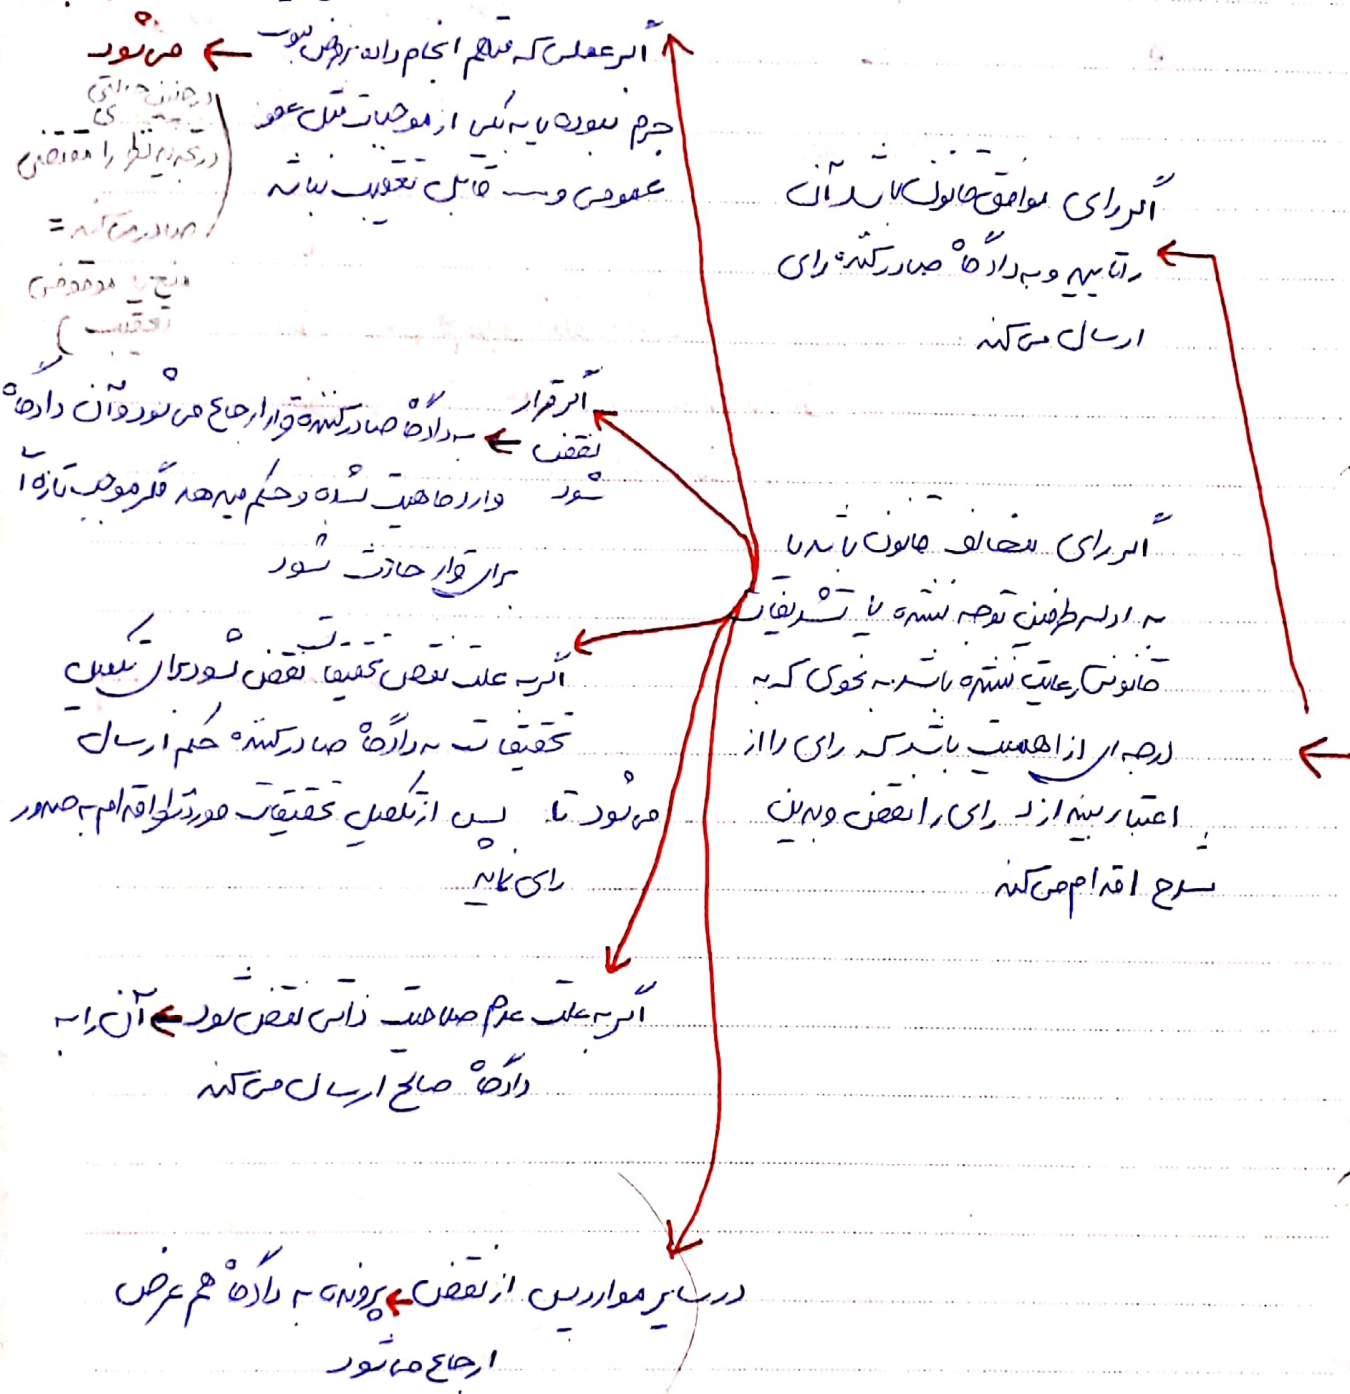 اگر رای موافق قانون باشد آن
را تایید و به دادگاه صادر کننده رای
ارسال می کند
اگر رای مخالف قانون باشد یا
به ادله طرفین توجه نشده یا تشریفات
قانونی رعایت نشده باشد به نحوی که به
درجه ای از اهمیت باشد که رای را از
اعتبار بیندازد رای را نقض و بدین
شرح اقدام می کند
اگر عملی که متهم انجام داده بر فرض ثبوت
جرم نبوده یا به یکی از موجبات مثل عفو
عمومی و قابل تعقیب نباشد
می شود
در چنین حالتی
در تجدید نظر را مقتضی
صادر می کند =
منع یا موقوفی
تعقیب )
اگر قرار
نقض
شود
به دادگاه صادر کننده قرار ارجاع می شود و آن دادگاه
وارد ماهیت شده و حکم میدهد مگر موجب تازه ا
برای قرار حادث شود
اگر به علت نقص تحقیقات نقض شود برای تکمیل
تحقیقات به دادگاه صادر کننده حکم ارسال
می شود تا پس از تکمیل تحقیقات مورد نظر اقدام به صدور
رای نماید
اگر به علت عدم صلاحیت ذاتی نقض شود آن را به
دادگاه صالح ارسال می کند
در سایر موارد پس از نقض پرونده به دادگاه هم عرض
ارجاع می شود